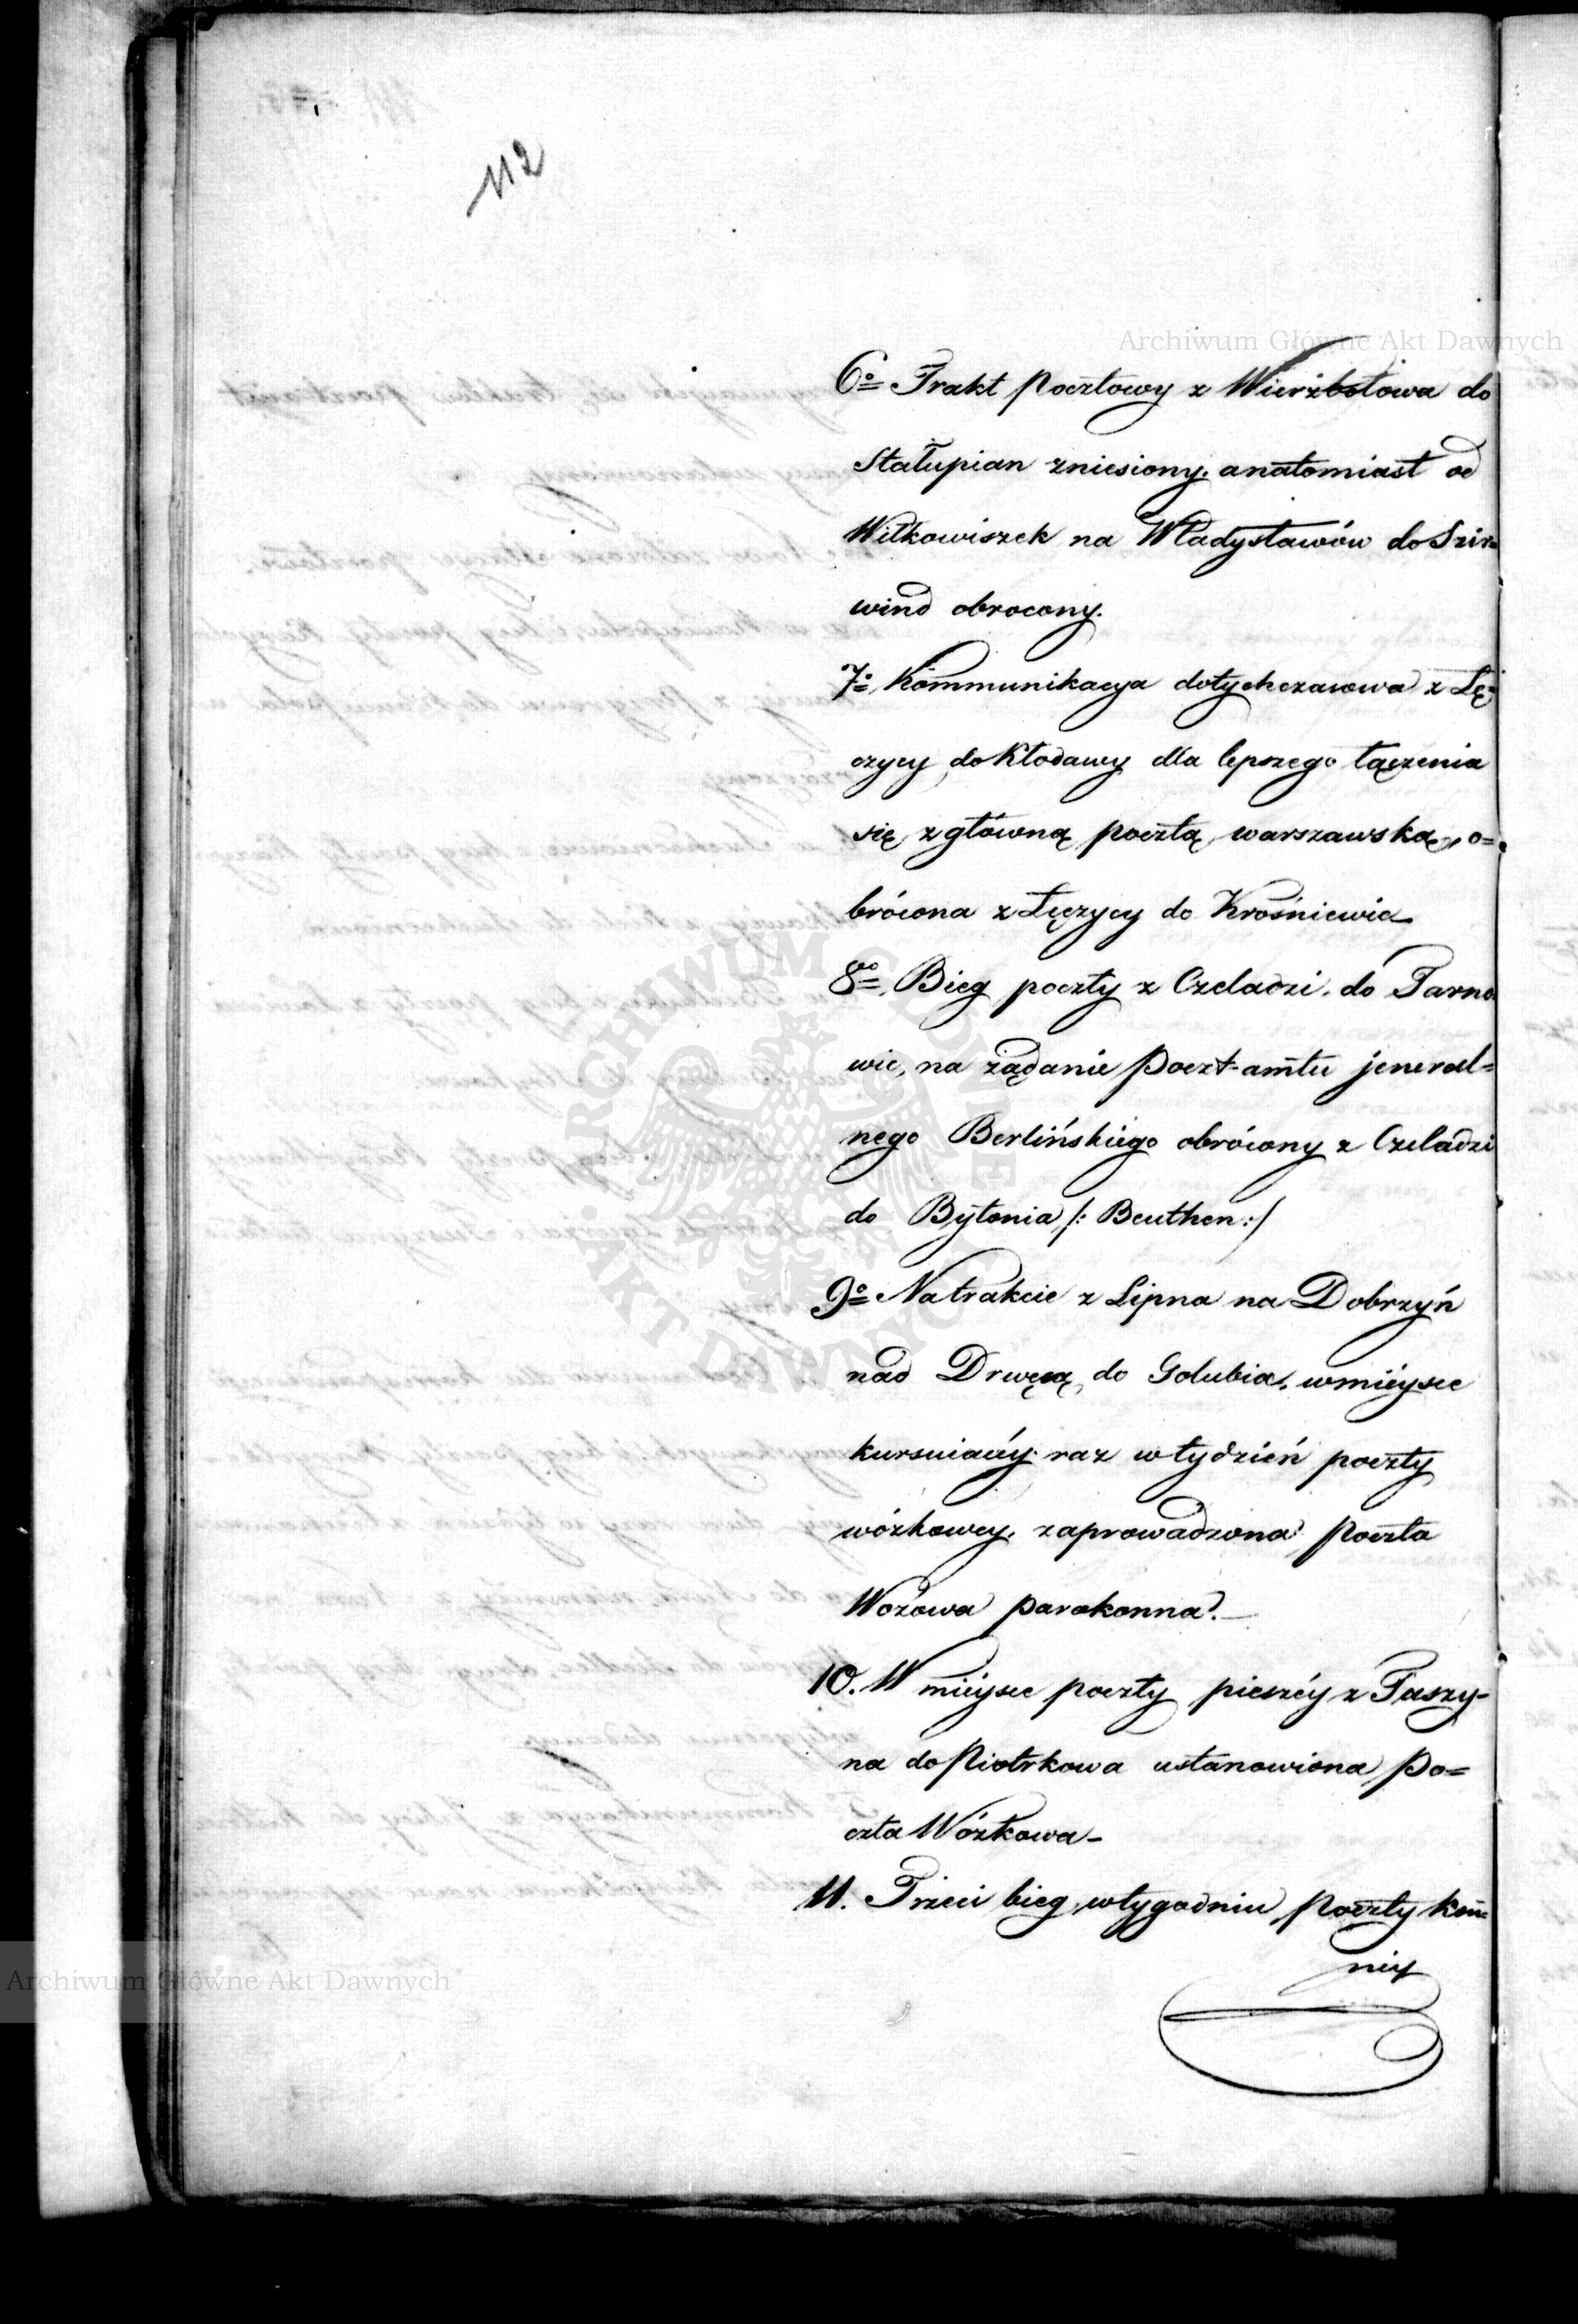 112
Archiwum Główne Akt Dawnych
6º Trakt pocztowy z Wierzbołowa do
Stałupian zniesiony, anatomiast od
Wiłkowiszek na Władysławów do Szir=
wind obrocony.
7º Kommunikacya dotychczasowa z Łę=
czycy do Kłodawy dla lepszego łączenia
się z główną pocztą warszawską, o=
brócona z Łęczycy do Krośniewic
8º Bieg poczty z Czeladzi do Tarno
wic, na żądanie Poczt-amtu jeneral=
nego Berlińskiego obrócony z Czeladzi
do Bytonia /: Beuthen :/
9º Na trakcie z Lipna na Dobrzyń
nad Drwęcą do Golubia, w miéysce
kursuiącéy raz w tydzień poczty
wózkowey, zaprowadzona poczta
Wozowa parokonna.
10. W miéysce poczty pieszéy z Taszy-
na do Piotrkowa ustanowiona Po=
czta Wózkowa -
11. Trzeci bieg w tygodniu Poczty kon=
néy
ARCHIWUM GŁÓWNE AKT DAWNYCH
Archiwum Główne Akt Dawnych